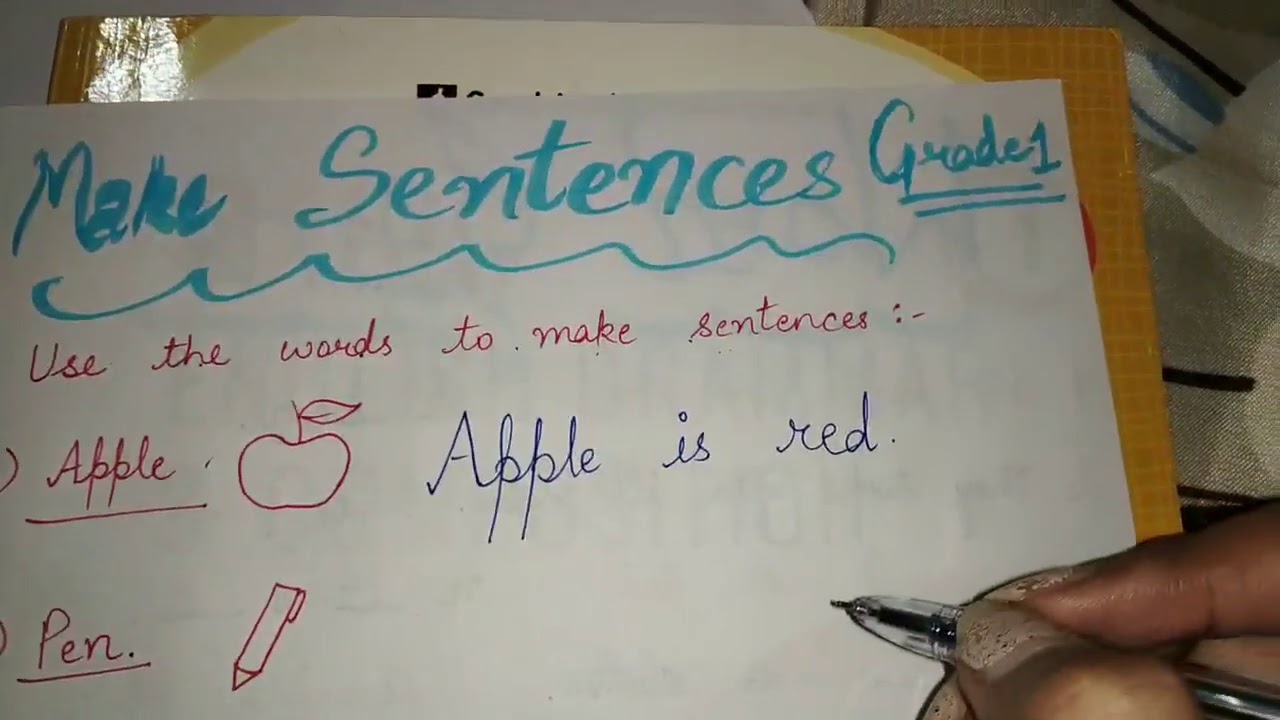 Make Sentences Grade1
Use the words to make sentences :-
) Apple . Apple is red.
) Pen.